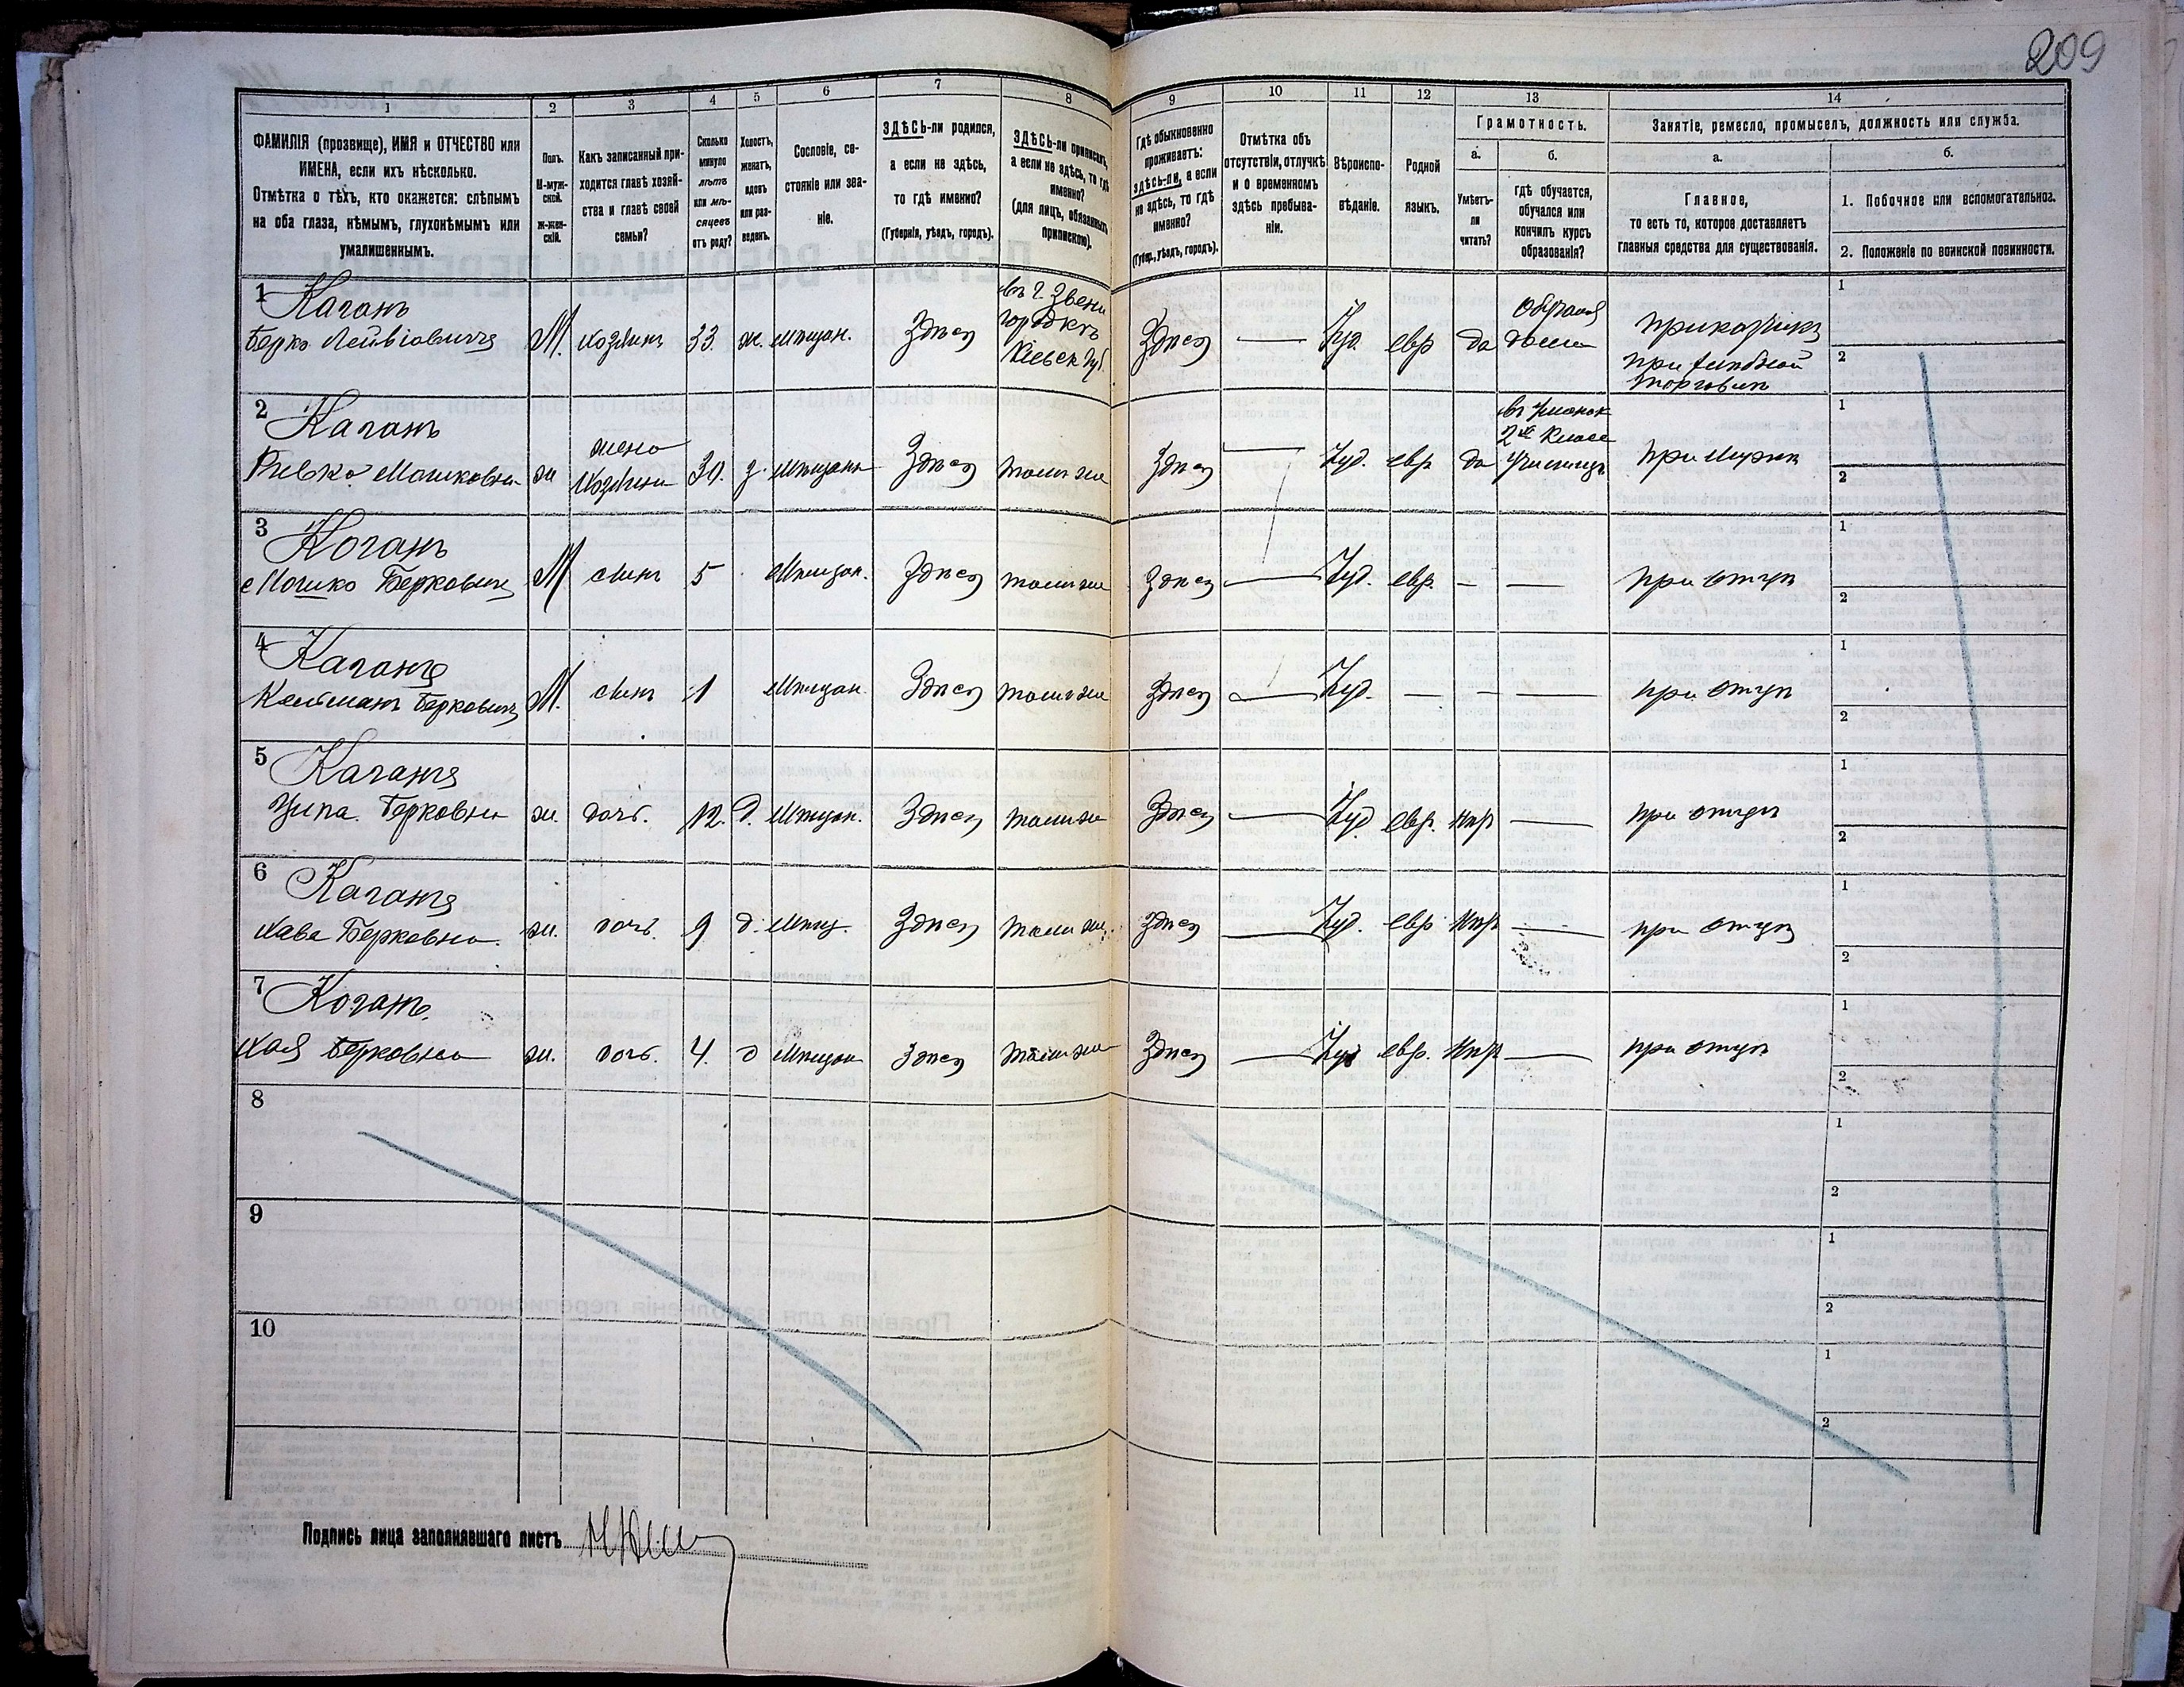 209
1
2
3
4
5
6
7
8
9
10
11
12
13
14
ФАМИЛІЯ (прозвище), ИМЯ и ОТЧЕСТВО или
ИМЕНА, если ихъ нѣсколько.
Отмѣтка о тѣхъ, кто окажется: слѣпымъ
на оба глаза, нѣмымъ, глухонѣмымъ или
умалишеннымъ.
Полъ.
М-муж-
ской.
Ж-жен-
скій.
Какъ записанный при-
ходится главѣ хозяй-
ства и главѣ своей
семьи?
Сколько
минуло
лѣтъ
или мѣ-
сяцевъ
отъ роду?
Холостъ,
женатъ,
вдовъ
или раз-
веденъ.
Сословіе, со-
стояніе или зва-
ніе.
ЗДѢСЬ-ли родился,
а если не здѣсь,
то гдѣ именно?
(Губернія, уѣздъ, городъ).
ЗДѢСЬ-ли приписанъ,
а если не здѣсь, то гдѣ
именно?
(для лицъ, обязанныхъ
припискою).
Гдѣ обыкновенно
проживаетъ:
здѣсь-ли, а если
не здѣсь, то гдѣ
именно?
(Губер., уѣздъ, городъ).
Отмѣтка объ
отсутствіи, отлучкѣ
и о временномъ
здѣсь пребыва-
ніи.
Вѣроиспо-
вѣданіе.
Родной
языкъ.
Грамотность.
а.
Умѣетъ-
ли
читать?
б.
гдѣ обучается,
обучался или
кончилъ курсъ
образованія?
Занятіе, ремесло, промыселъ, должность или служба.
а.
Главное,
то есть то, которое доставляетъ
главныя средства для существованія.
б.
1. Побочное или вспомогательное.
2. Положеніе по воинской повинности.
1 Каганъ
Берко Лейвіовичъ М. хозяинъ 33. ж. мѣщан. Здѣсь въ г. Звени
городкѣ
Кіевск. губ. Здѣсь — Іуд. евр да дома приказчикъ
при
торговлѣ
1
2
2 Каганъ
Ривка Мошковна ж жена
хозяина 30. з. мѣщанк Здѣсь тамъ же Здѣсь — Іуд. евр да
2хъ класс
училищѣ при мужѣ
1
2
3 Коганъ
Мошко Берковичъ М сынъ 5 мѣщан. Здѣсь тамъ же Здѣсь — Іуд. евр. — — при отцѣ
1
2
4 Каганъ
Берковичъ М. сынъ 1 мѣщан. Здѣсь тамъ же Здѣсь — Іуд. — — — при отцѣ
1
2
5 Каганъ
Ципа Берковна ж. дочь. 12. д. мѣщан. Здѣсь тамъ же Здѣсь — Іуд евр. нѣт — при отцѣ
1
2
6 Каганъ
Хава Берковна. ж. дочь. 9 д. мѣщ. Здѣсь тамъ же. Здѣсь — Іуд. евр нѣт — при отцѣ
1
2
7 Коганъ.
Хая Берковна ж. дочь. 4. д мѣщан Здѣсь тамъ же Здѣсь — Іуд евр. нѣт — при отцѣ
1
2
8
1
2
9
1
2
10
1
2
Подпись лица заполнявшаго листъ